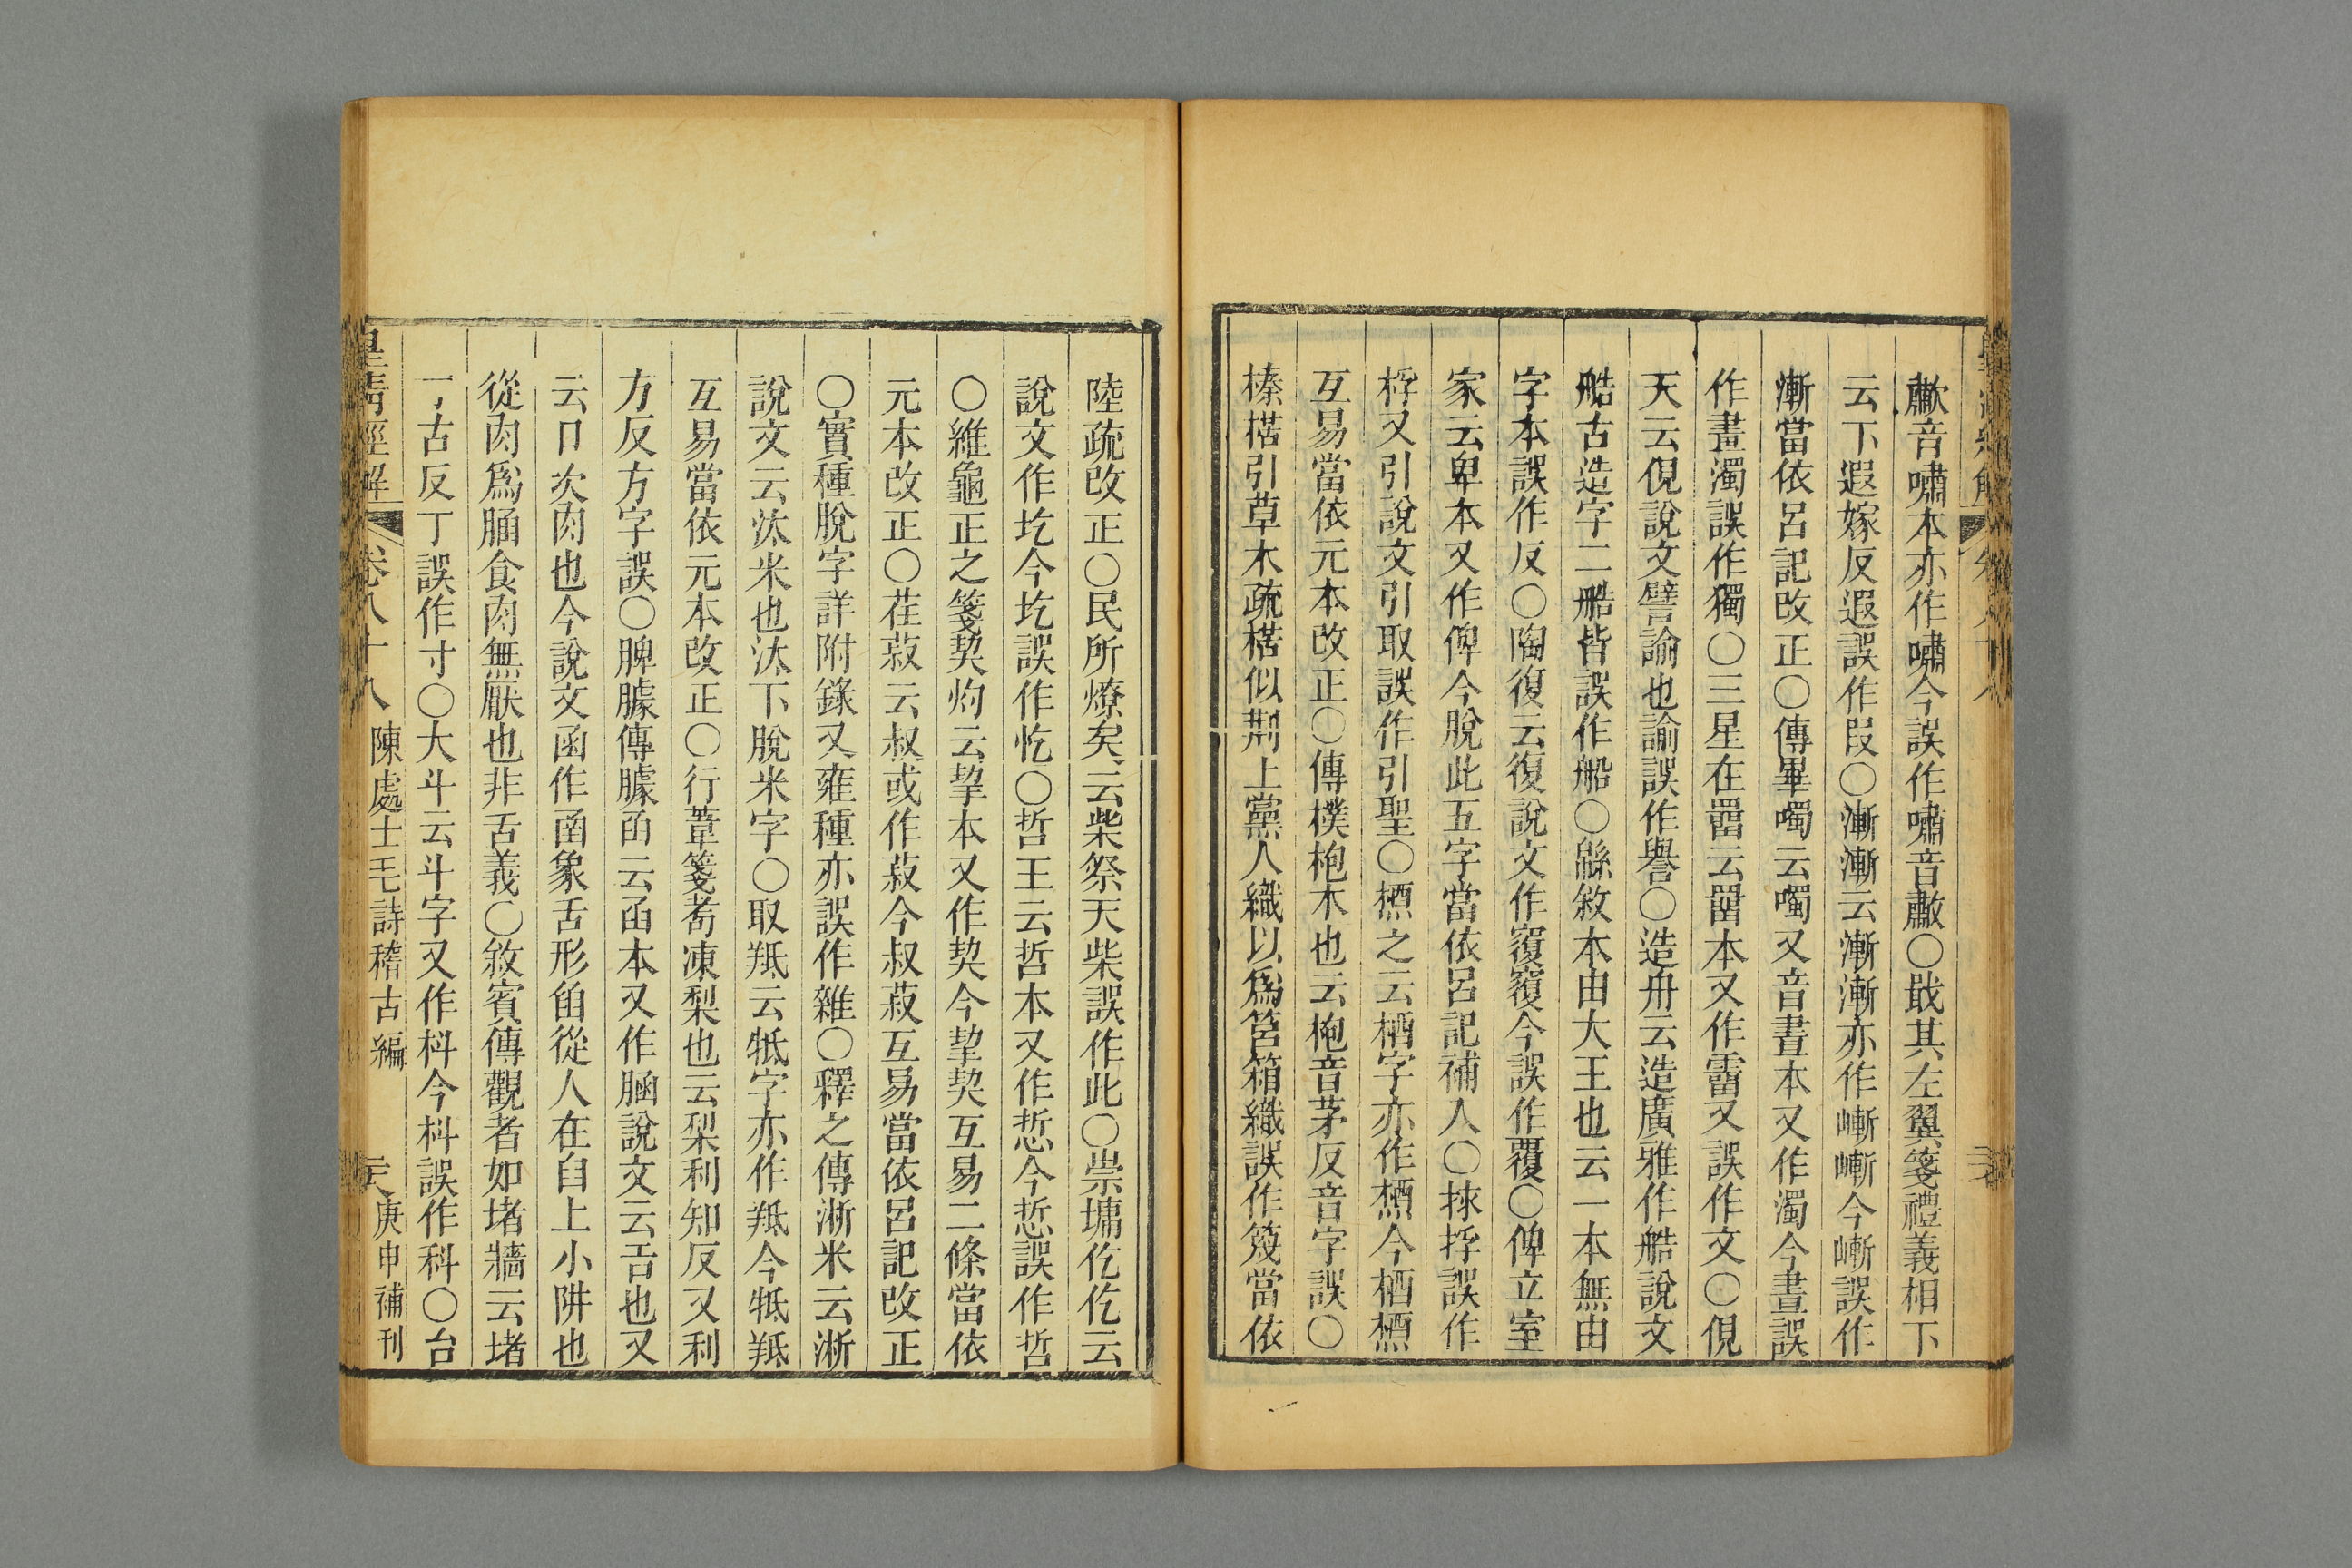 歗音嘯本亦作嘯今誤作嘯音歗〇戢其左翼箋禮義相下
云下遐嫁反遐誤作叚〇漸漸云漸漸亦作嶄嶄今嶄誤作
漸當依呂記改正〇傳畢噣云噣又音晝本又作濁今晝誤
作畫濁誤作獨〇三星在罶云罶本又作霤又誤作文〇俔
天云俔說文譬諭也諭誤作譽〇造舟云造廣雅作艁說文
艁古造字二艁皆誤作船〇緜敘本由大王也云一本無由
字本誤作反〇陶復云復說文作𥨍𥨍今誤作覆〇俾立室
家云卑本又作俾今脫此五字當依呂記補入〇捄捊誤作
桴又引說文引取誤作引聖〇槱之云栖字亦作槱今栖槱
互易當依元本改正〇傳樸枹木也云枹音茅反音字誤〇
榛楛引草木疏楛似荆上黨人織以爲筥箱織誤作䈊當依
陸疏改正〇民所燎矣云柴祭天柴誤作此〇崇墉仡仡云
說文作圪今圪誤作忔〇哲王云哲本又作悊今悊誤作哲
〇維龜正之箋契灼云挈本又作契今挈契互易二條當依
元本改正〇荏菽云叔或作菽今叔菽互易當依呂記改正
〇實種脫字詳附錄又雍種亦誤作雜〇釋之傳淅米云淅
說文云汰米也汰下脫米字〇取羝云牴字亦作羝今牴羝
互易當依元本改正〇行葦箋耇凍梨也云梨利知反又利
方反方字誤〇脾臄傳臄函云函本又作𦛜說文云舌也又
云口次肉也今說文函作𠚩象舌形臽從人在臼上小阱也
從肉爲𦛜食肉無厭也非舌義〇敘賓傳觀者如堵牆云堵
丁古反丁誤作寸〇大斗云斗字又作枓今枓誤作科〇台
皇清經解 卷八十八 陳處士毛詩稽古編 庚申補刊